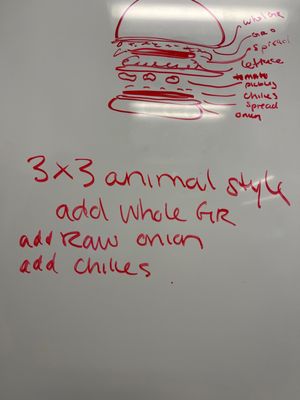 whole GR
GRO
Spread
lettuce
tomato
pickles
chilies
spread
onion
3x3 animal style
add whole GR
add Raw onion
add chilies